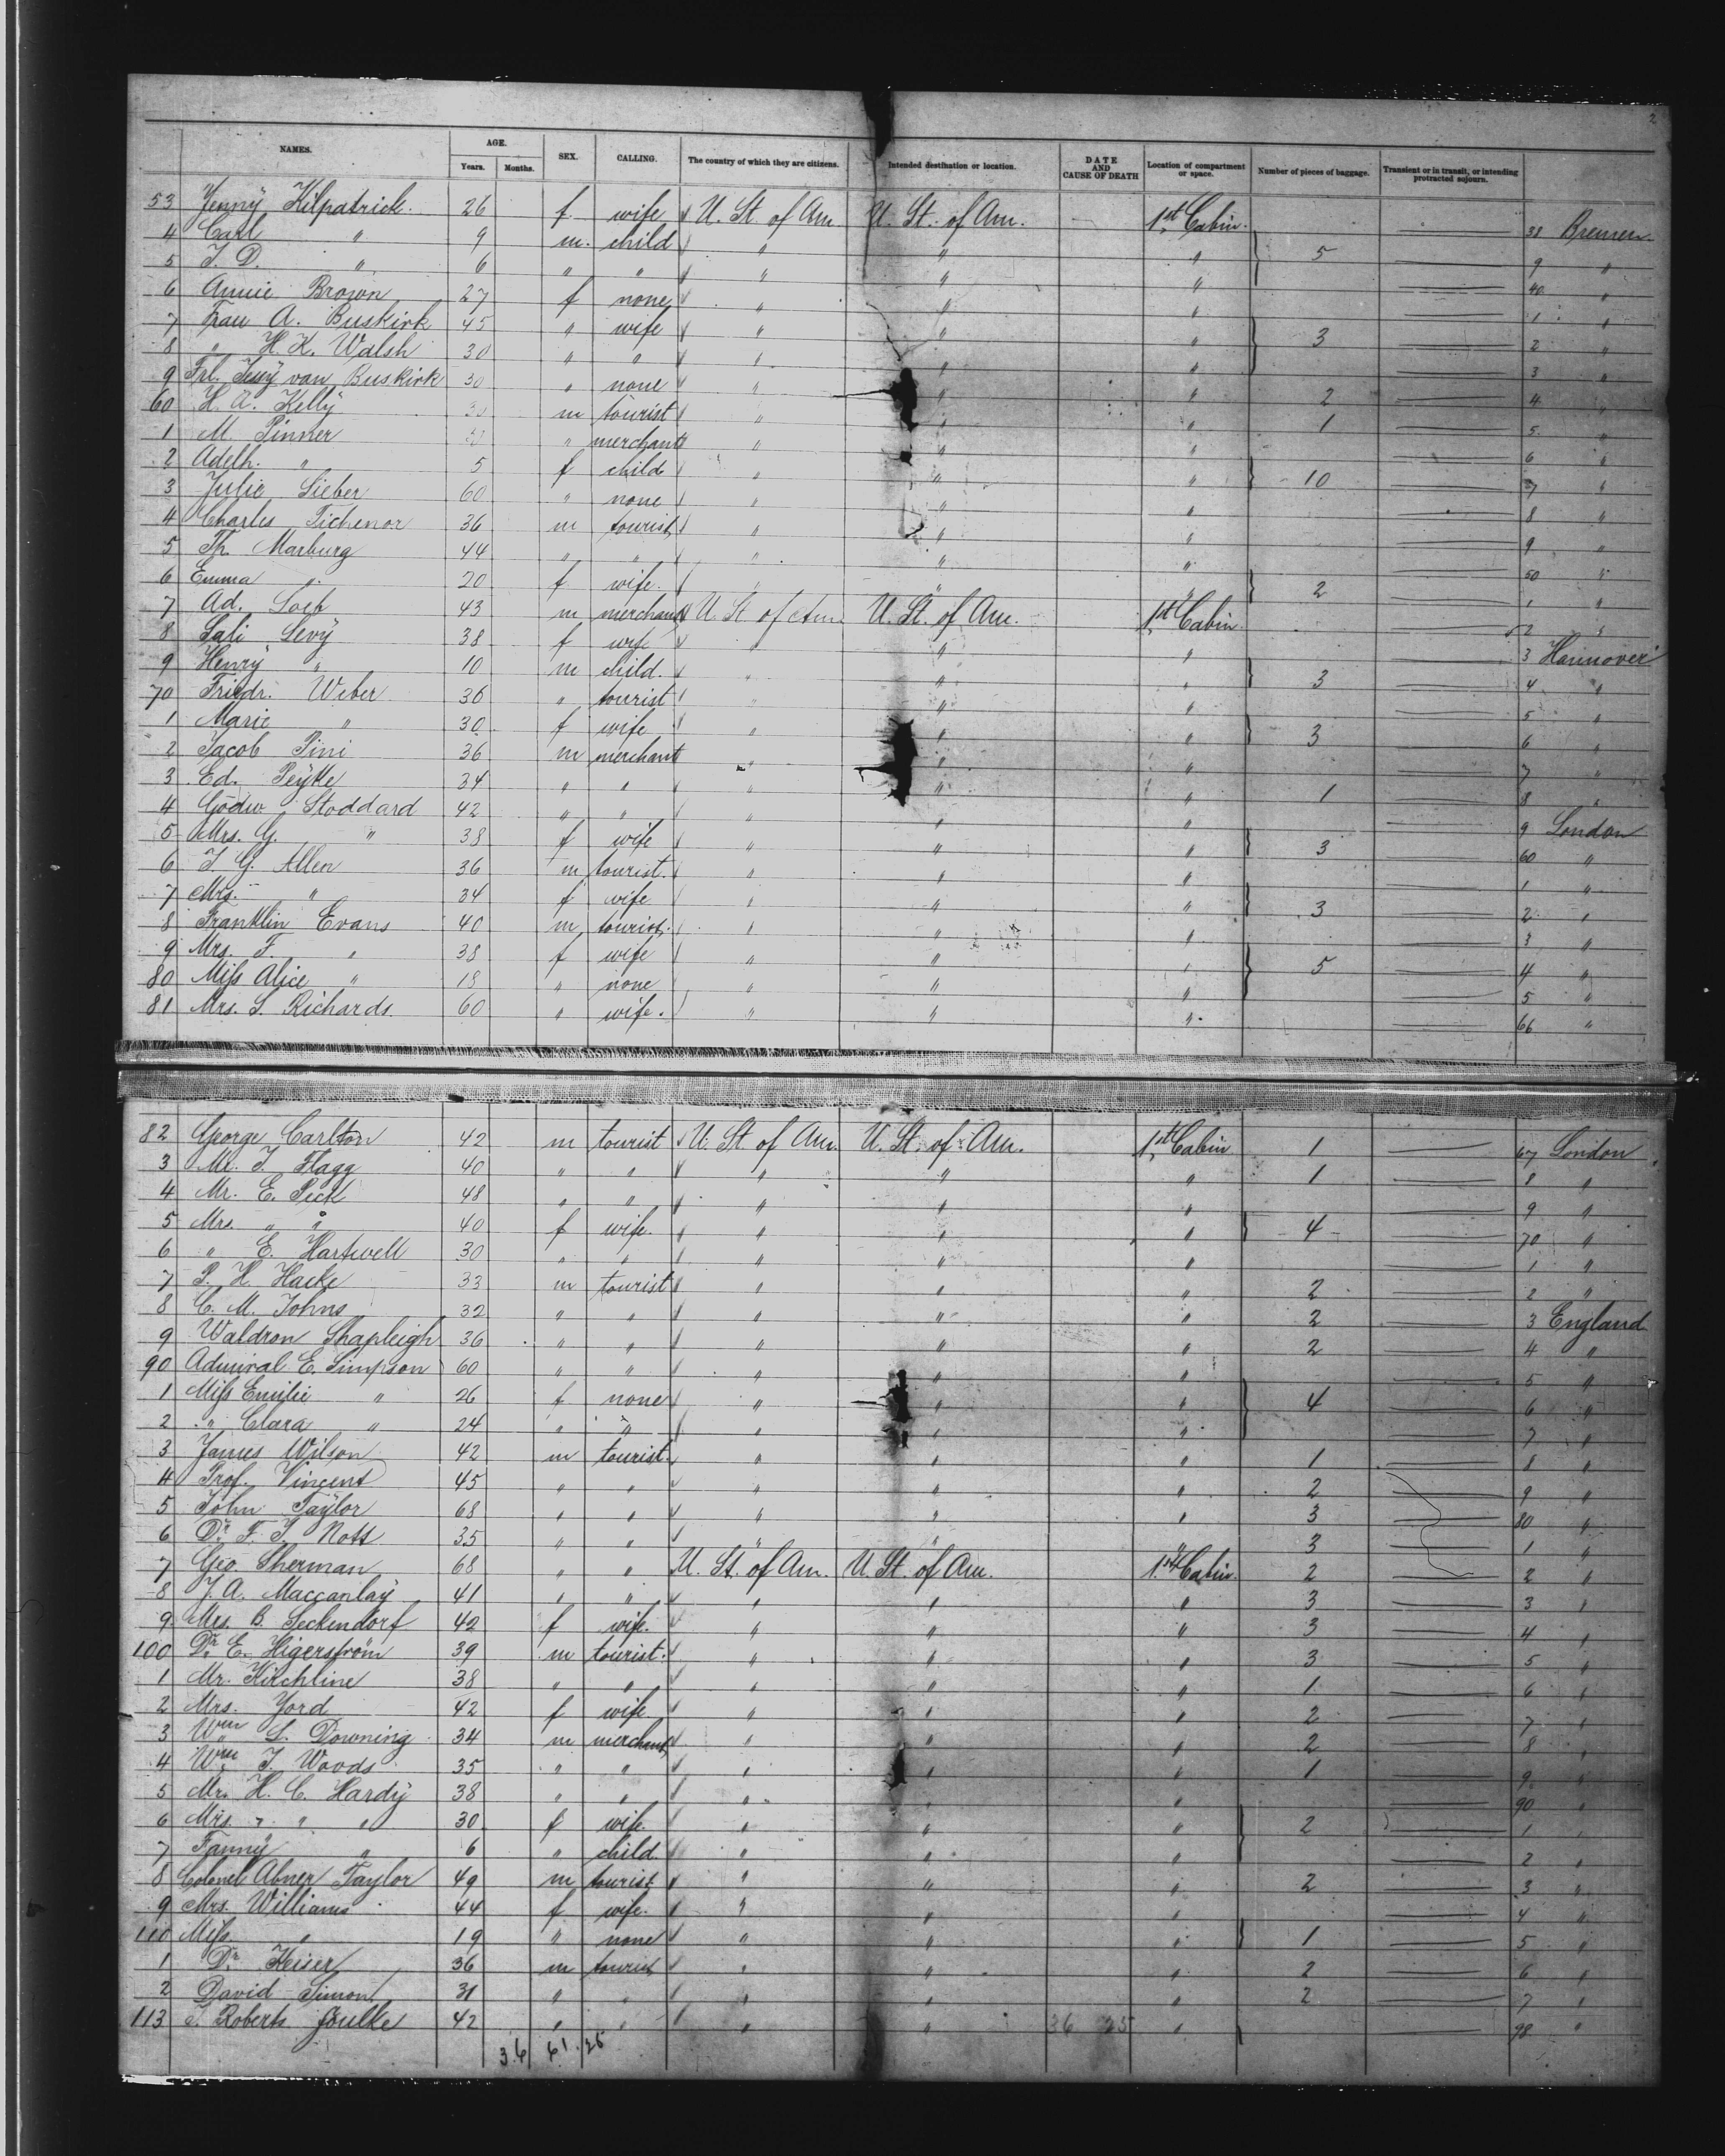 2
NAMES. AGE. Years. Months. SEX. CALLING. The country of which they are citizens. Intended destination or location. DATE AND CAUSE OF DEATH Location of compartment or space. Number of pieces of baggage. Transient or in transit, or intending protracted sojourn.
53 Jenny Kilpatrick. 26 f. wife U. St. of Am. U. St. of Am. 1st Cabin. 38 Bremen.
4 Carl " 9 m. child " " " 5 9 "
5 J. D. " 6 " " " " " 40 "
6 Annie Brown 27 f none " " " 1 "
7 Frau A. Buskirk 45 " wife " " " 3 2 "
8 " H. K. Walsh 30 " " " " " 3 "
9 Frl. Jessy van Buskirk 30 " none " " " 2 4 "
60 H. A. Kelly m tourist " " " 1 5 "
1 M. Pinner " merchant " " " 6 "
2 Adelh. " 5 f child " " " 10 7 "
3 Julie Lieber 60 " none " " " 8 "
4 Charles Tichenor 36 m tourist " " " 9 "
5 Th. Marburg 44 " " " " " 50 "
6 Emma " 20 f wife. " " " 2 1 "
7 Ad. Loeb 43 m merchant U. St. of Am. U. St. of Am. 1st Cabin 2 "
8 Sali Levy 38 f wife " " " 3 Hannover
9 Henry " 10 m child. " " " 3 4 "
70 Friedr. Weber 36 " tourist " " " 5 "
1 Marie " 30 f wife " " " 3 6 "
2 Jacob Pini 36 m merchant " " " 7 "
3 Ed. 34 " " " " " 1 8 "
4 Godw Stoddard 42 " " " " " 9 London
5 Mrs. G. " 38 f wife " " " 3 60 "
6 J G. Allen 36 m tourist. " " " 1 "
7 Mrs. " 34 f wife " " " 3 2 "
8 Franklin Evans 40 m tourist. " " " 3 "
9 Mrs. F. " 38 f wife " " " 5 4 "
80 Miss Alice " 18 " none " " " 5 "
81 Mrs. S. Richards. 60 " wife. " " " 66 "
82 George Carlton 42 m tourist U. St. of Am. U. St. of Am. 1st Cabin 1 67 London
3 Mr. J. Flagg 40 " " " " " 1 8 "
4 Mr. E. Pick 48 " " " " " 9 "
5 Mrs. " " 40 f wife. " " " 4 70 "
6 " E. Hartwell 30 " " " " " 1 "
7 P. H. Hacke 33 m tourist " " " 2 2 "
8 C. M. Johns 32 " " " " " 2 3 England
9 Waldron Shapleigh 36 " " " " " 2 4 "
90 Admiral E. Simpson 60 " " " " " 5 "
1 Miss Emilie " 26 f none " " " 4 6 "
2 " Clara " 24 " " " " " 7 "
3 James Wilson 42 m tourist. " " " 1 8 "
4 Prof. Vincent 45 " " " " " 2 9 "
5 John Taylor 68 " " " " " 3 80 "
6 Dr. F. J. Nott 35 " " " " " 3 1 "
7 Geo Sherman 68 " " U. St. of Am. U. St. of Am. 1st Cabin. 2 2 "
8 J. A. Maccanlay 41 " " " " " 3 3 "
9 Mrs. B. Seckendorf 42 f wife. " " " 3 4 "
100 Dr. E. Higerström 39 m tourist. " " " 3 5 "
1 Mr. Kirchline 38 " " " " " 1 6 "
2 Mrs. Yord 42 f wife. " " " 2 7 "
3 Wm S. Downing 34 m merchant " " " 2 8 "
4 Wm J. Woods 35 " " " " " 1 9 "
5 Mr. H. C. Hardy 38 " " " " " 90 "
6 Mrs. " " " 30 f wife. " " " 2 1 "
7 Fanny " 6 " child. " " " 2 "
8 Colonel Abner Taylor 49 m tourist " " " 2 3 "
9 Mrs. Williams 44 f wife. " " " 4 "
110 Miss " 19 " none " " " 1 5 "
1 Dr. Keiser 36 m tourist " " " 2 6 "
2 David Simon 31 " " " " " 2 7 "
113 J. Roberts Foulke 42 " " " " 36 25 " 98 "
36 61.25